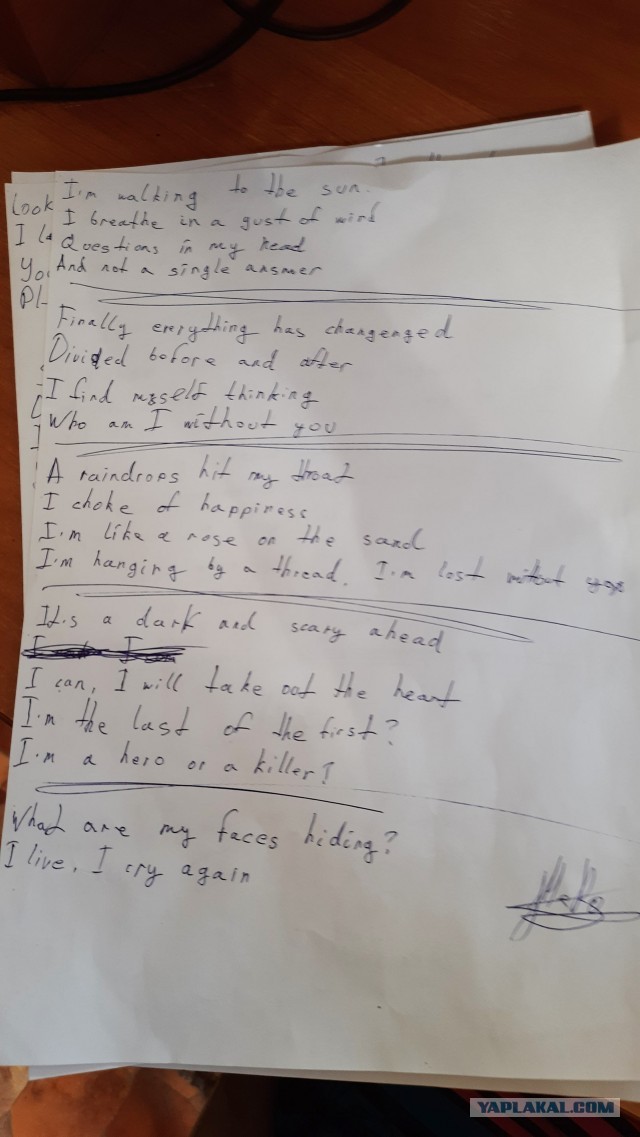 I'm walking to the sun.
I breathe in a gust of wind
Questions in my head
And not a single answer
Finally everything has changenged
Divided before and after
I find myself thinking
Who am I without you
A raindrops hit my throat
I choke of happiness
I'm like a rose on the sand
I'm hanging by a thread. I'm lost without you
It's a dark and scary ahead
I can, I will take out the heart
I'm the last of the first?
I'm a hero or a killer?
What are my faces hiding?
I live, I cry again
Look
YAPLAKAL.COM